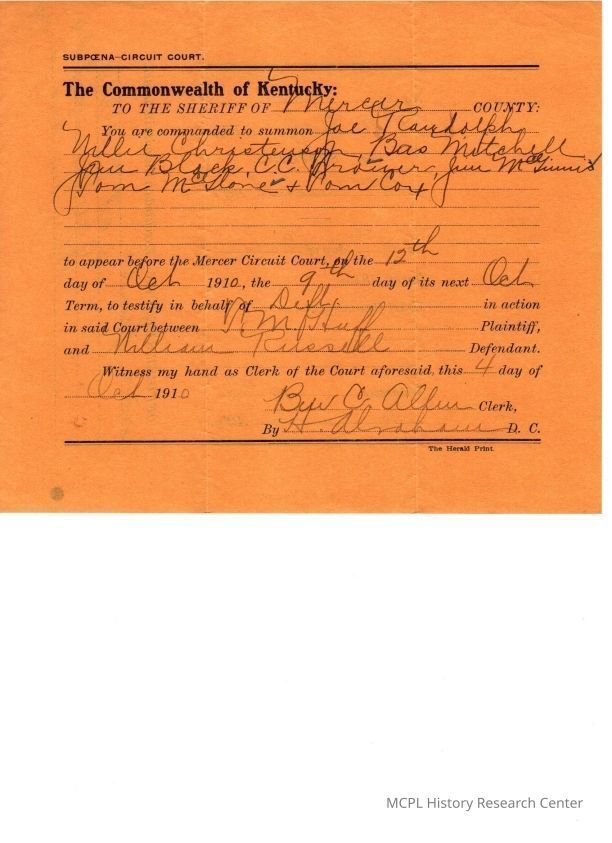 SUBPŒNA—CIRCUIT COURT.
The Commonwealth of Kentucky:
TO THE SHERIFF OF Mercer COUNTY:
You are commanded to summon Joe Randolph,
Willie Christenson, Bas Mitchell
Black, C.C. Brower, Jim McGinnis
Tom McGlone & Tom Cox
to appear before the Mercer Circuit Court, on the 12th
day of Oct 1910, the 9th day of its next Oct
Term, to testify in behalf of Deft. in action
in said Court between Huff Plaintiff,
and William Russell Defendant.
Witness my hand as Clerk of the Court aforesaid, this 4 day of
Oct 1910
Ben C. Allin Clerk,
By H. Abraham D. C.
The Herald Print.
MCPL History Research Center